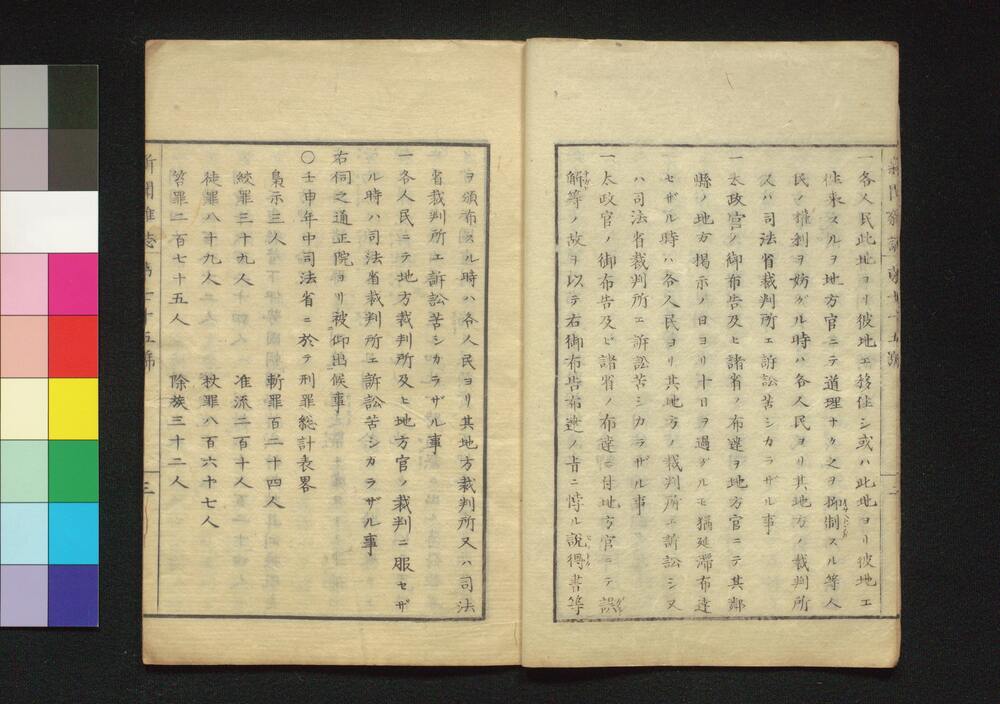 一各人民此地ヨリ彼地エ移住シ或ハ此地ヨリ彼地エ
往来スルヲ地方官ニテ道理ナク之ヲ抑制スル等人
民ノ権利ヲ妨ゲル時ハ各人民ヨリ其地方ノ裁判所
又ハ司法省裁判所エ訴訟苦シカラザル事
一太政官ノ御布告及ヒ諸省ノ布達ヲ地方官ニテ其鄰
縣ノ地方掲示ノ日ヨリ十日ヲ過グルモ猶延滞布達
セザル時ハ各人民ヨリ其地方ノ裁判所エ訴訟シ又
ハ司法省裁判所エ訴訟苦シカラザル事
一太政官ノ御布告及ビ諸省ノ布達ニ付地方官ニテ誤
解等ノ故ヲ以テ右御布告布達ノ旨ニ悖ル説得書等
ヲ頒布スル時ハ各人民ヨリ其地方裁判所又ハ司法
省裁判所エ訴訟苦シカラザル事
一各人民ニテ地方裁判所及ヒ地方官ノ裁判ニ服セザ
ル時ハ司法省裁判所エ訴訟苦シカラザル事
右伺之通正院ヨリ被仰出候事
〇壬申年中司法省ニ於テ刑罪總計表畧
梟示三人 斬罪百二十四人
絞罪三十九人 准流二百十人
徒罪八十九人 杖罪八百六十七人
笞罪二百七十五人 除族三十二人
新聞雑誌 三